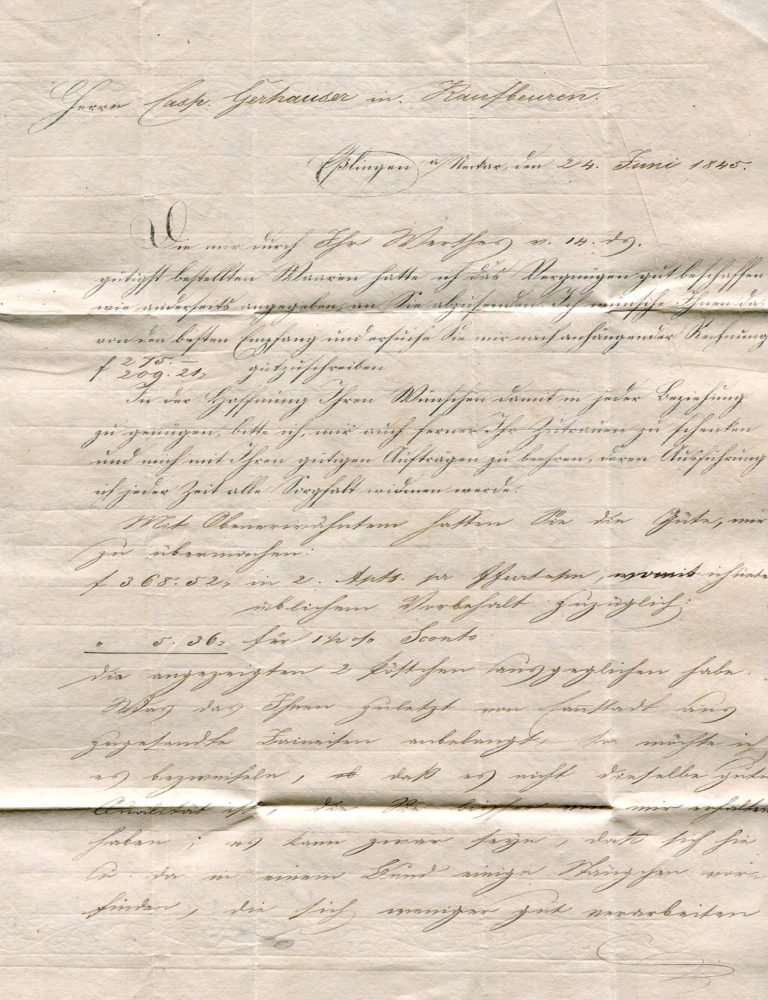 Herrn Casp. Gerhauser in Kaufbeuren.
Eßlingen a/ Neckar, den 24. Juni 1845.
Die mir durch Ihr Werthes v. 14. ds.
gütigst bestellten Waaren hatte ich das Vergnügen gut beschaffen
wie anderseits angegeben, an Sie abzusenden. Ich wünsche Ihnen da
von den besten Empfang und ersuche Sie mir nach anhängender Rechnung
f 275. –
209. 21, gutzuschreiben
In der Hoffnung Ihren Wünschen damit in jeder Beziehung
zu genügen, bitte ich, mir auch ferner Ihr Zutrauen zu schenken
und mich mit Ihren gütigen Aufträgen zu beehren, deren Ausführung
ich jeder Zeit alle Sorgfalt widmen werde.
Mit Obenerwähntem hatten Sie die Güte, mir
zu übermachen:
f 368. 52, in 2. Apts. womit ich unter
üblichem Vorbehalt zuzüglich:
" 5. 36, für 1½ o/o Sconto
die angezeigten 2 Pöstchen ausgeglichen habe.
Was das Ihnen zuletzt von Canstadt aus
zugesandte anbelangt, so möchte ich
es bezweifeln, ob daß es nicht dieselbe gute
Qualität ist, die Sie bisher von mir erhalten
haben; es kann zwar seyn, daß sich hie
u. da in einem Bund einige Stängchen vor-
finden, die sich weniger gut verarbeiten